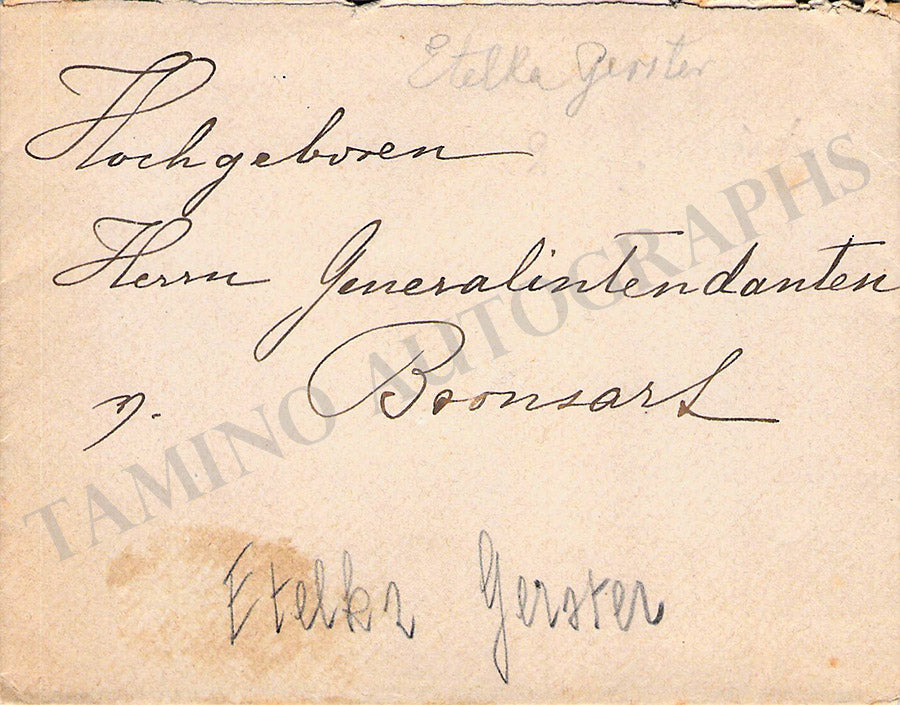 Etelka Gerster
Hochgeboren
Herrn Generalintendanten
v. Bronsart
TAMINO AUTOGRAPHS
Etelka Gerster